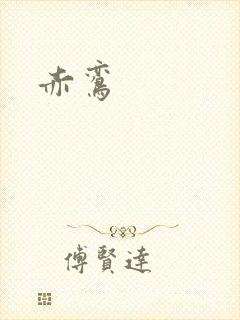 赤鸞
傅賢達